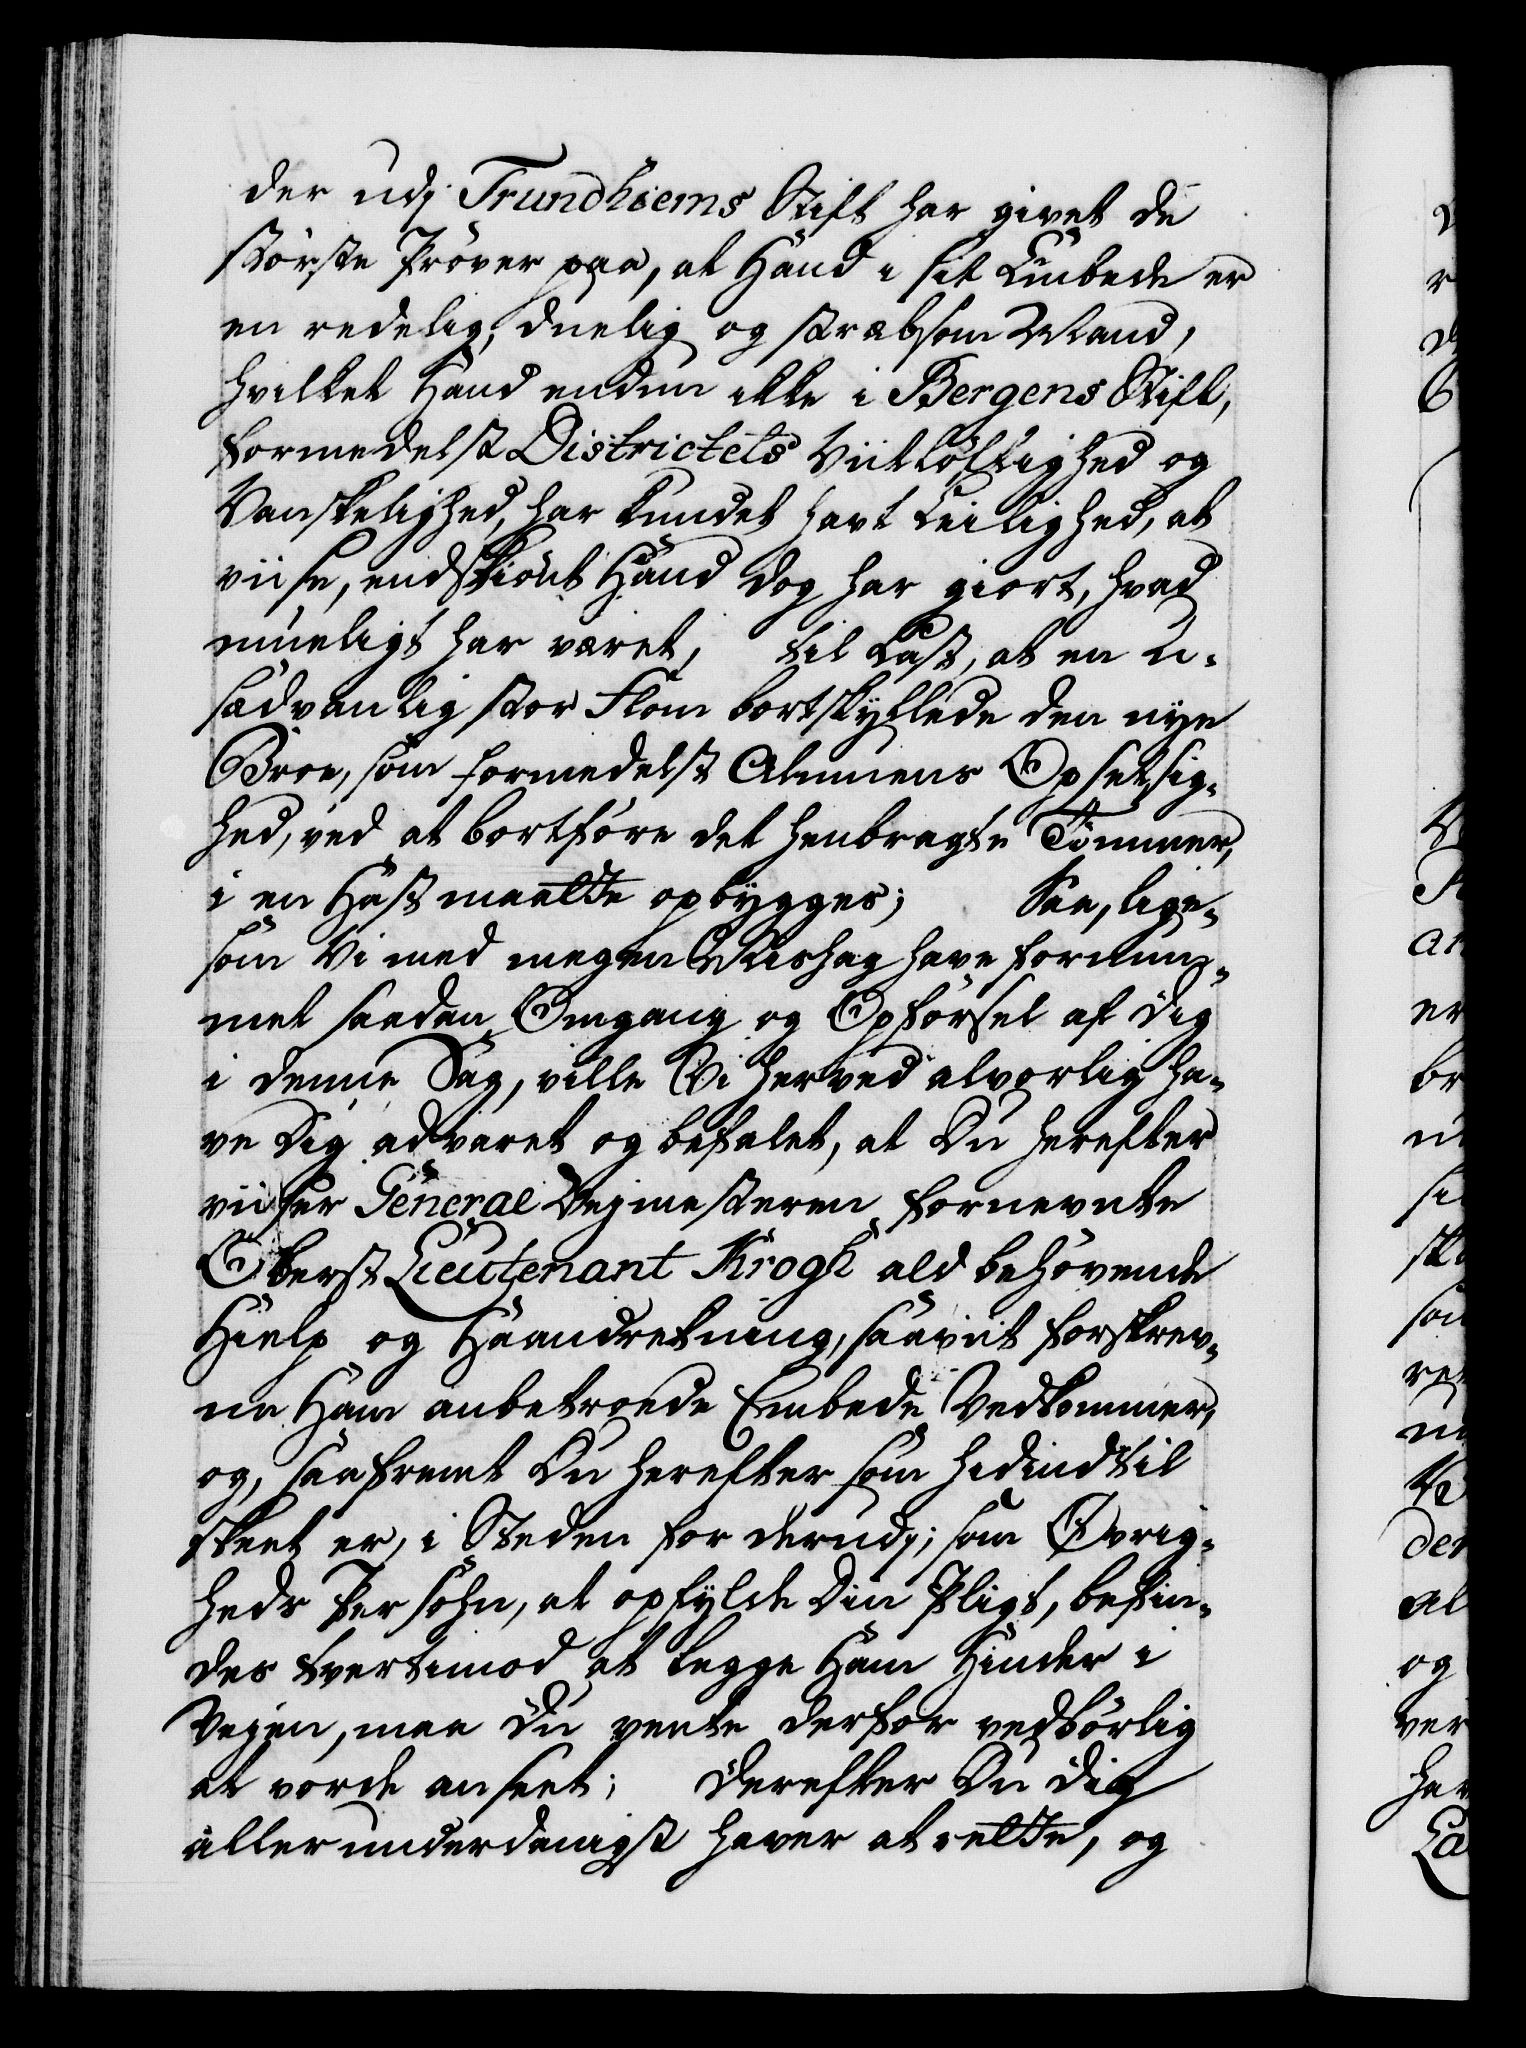 der udj Trundhiems Stift har givet de
störste Pröver paa, at Hand i sit Embede er
en redelig, duelig og stræbsom Mand,
hvilket Hand endnu ikke i Bergens Stift,
formedelst Districtets Viitløftighed og
Vanskelighed, har kundet havt Leilighed, at
viise, endskiönt Hand dog har giort, hvad
mueligt har været, til Last, at en u-
sædvanlig stor Flom bortskyllede den nye
Broe, som formedelst Almuens Opsetsig-
hed, ved at bortføre det henbragte Tømmer,
i en Hast maatte opbygges; Saa, lige-
som Vi med megen Mishag have fornum-
met saadan Omgang og Opførsel af dig
i denne Sag, ville Vi herved alvorlig ha-
ve Dig advaret og befalet, at Du herefter
viiser General Vejmesteren fornevnte
Oberst Lieutenant Krogh ald behøvende
Hielp og Haandretning, saaviit forskrev-
ne Ham anbetroede Embede Vedkommer,
og, saafremt Du herefter som hidindtil
skeet er, i Steden for derudj, som Øvrig-
heds Persohn, at opfylde Din Pligt, befin-
des tvertimod at legge Ham Hinder i
Vejen, maa Du vente derfor vedbørlig
at vorde anseet; Derefter Du dig
allerunderdanigst haver at rette, og